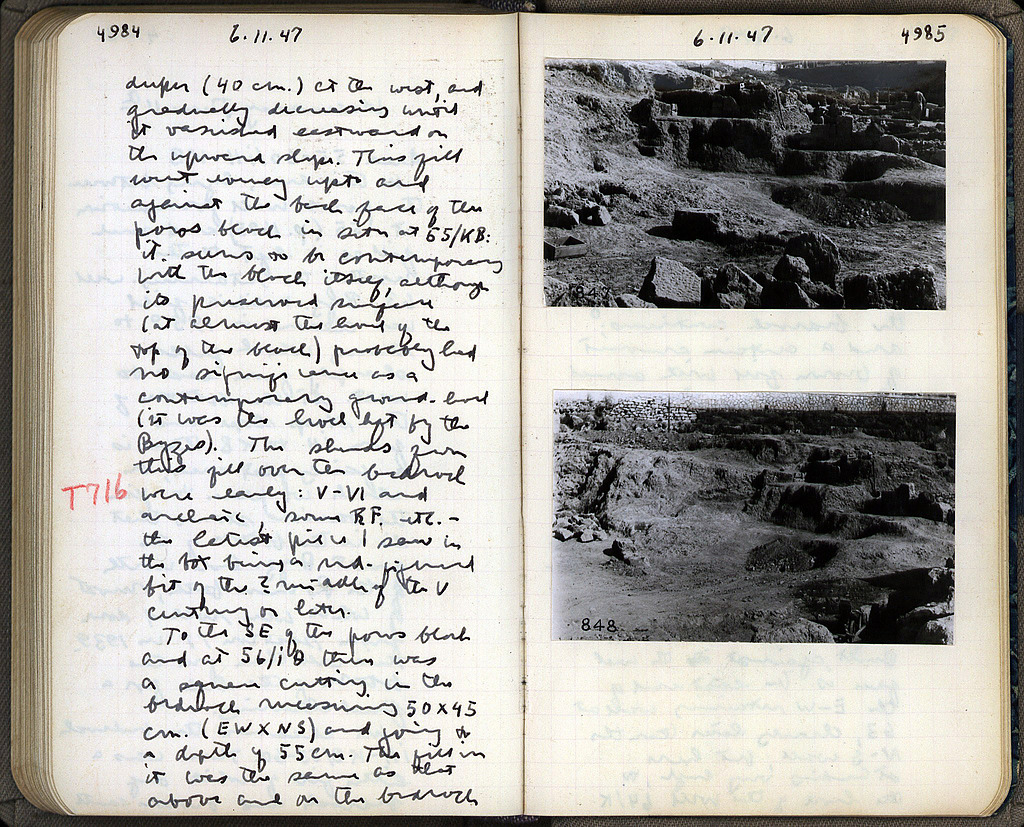 4984
6.11.47
deeper (40 cm.) at the west, and
gradually decreasing until
it vanished eastward on
the upward slope. This fill
went evenly up to and
against the back face of the
poros block in situ at 55/KB:
it seems to be contemporary
with the block itself, although
its preserved surface
(at almost the level of the
top of the block) probably had
no significance as a
contemporary ground-level
(it was the level left by the
Byzes). The sherds from
this fill over the bedrock
T716
were early: V-VI and
archaic, some RF. etc. -
the latest piece I saw in
the box being a red-figured
bit of the middle of the V
century or later.
To the SE of the poros block
and at 56/ there was
a square cutting in the
bedrock measuring 50 x 45
cm. (EW x NS) and going to
a depth of 55 cm. The fill in
it was the same as that
above and on the bedrock
6.11.47
4985
847
848